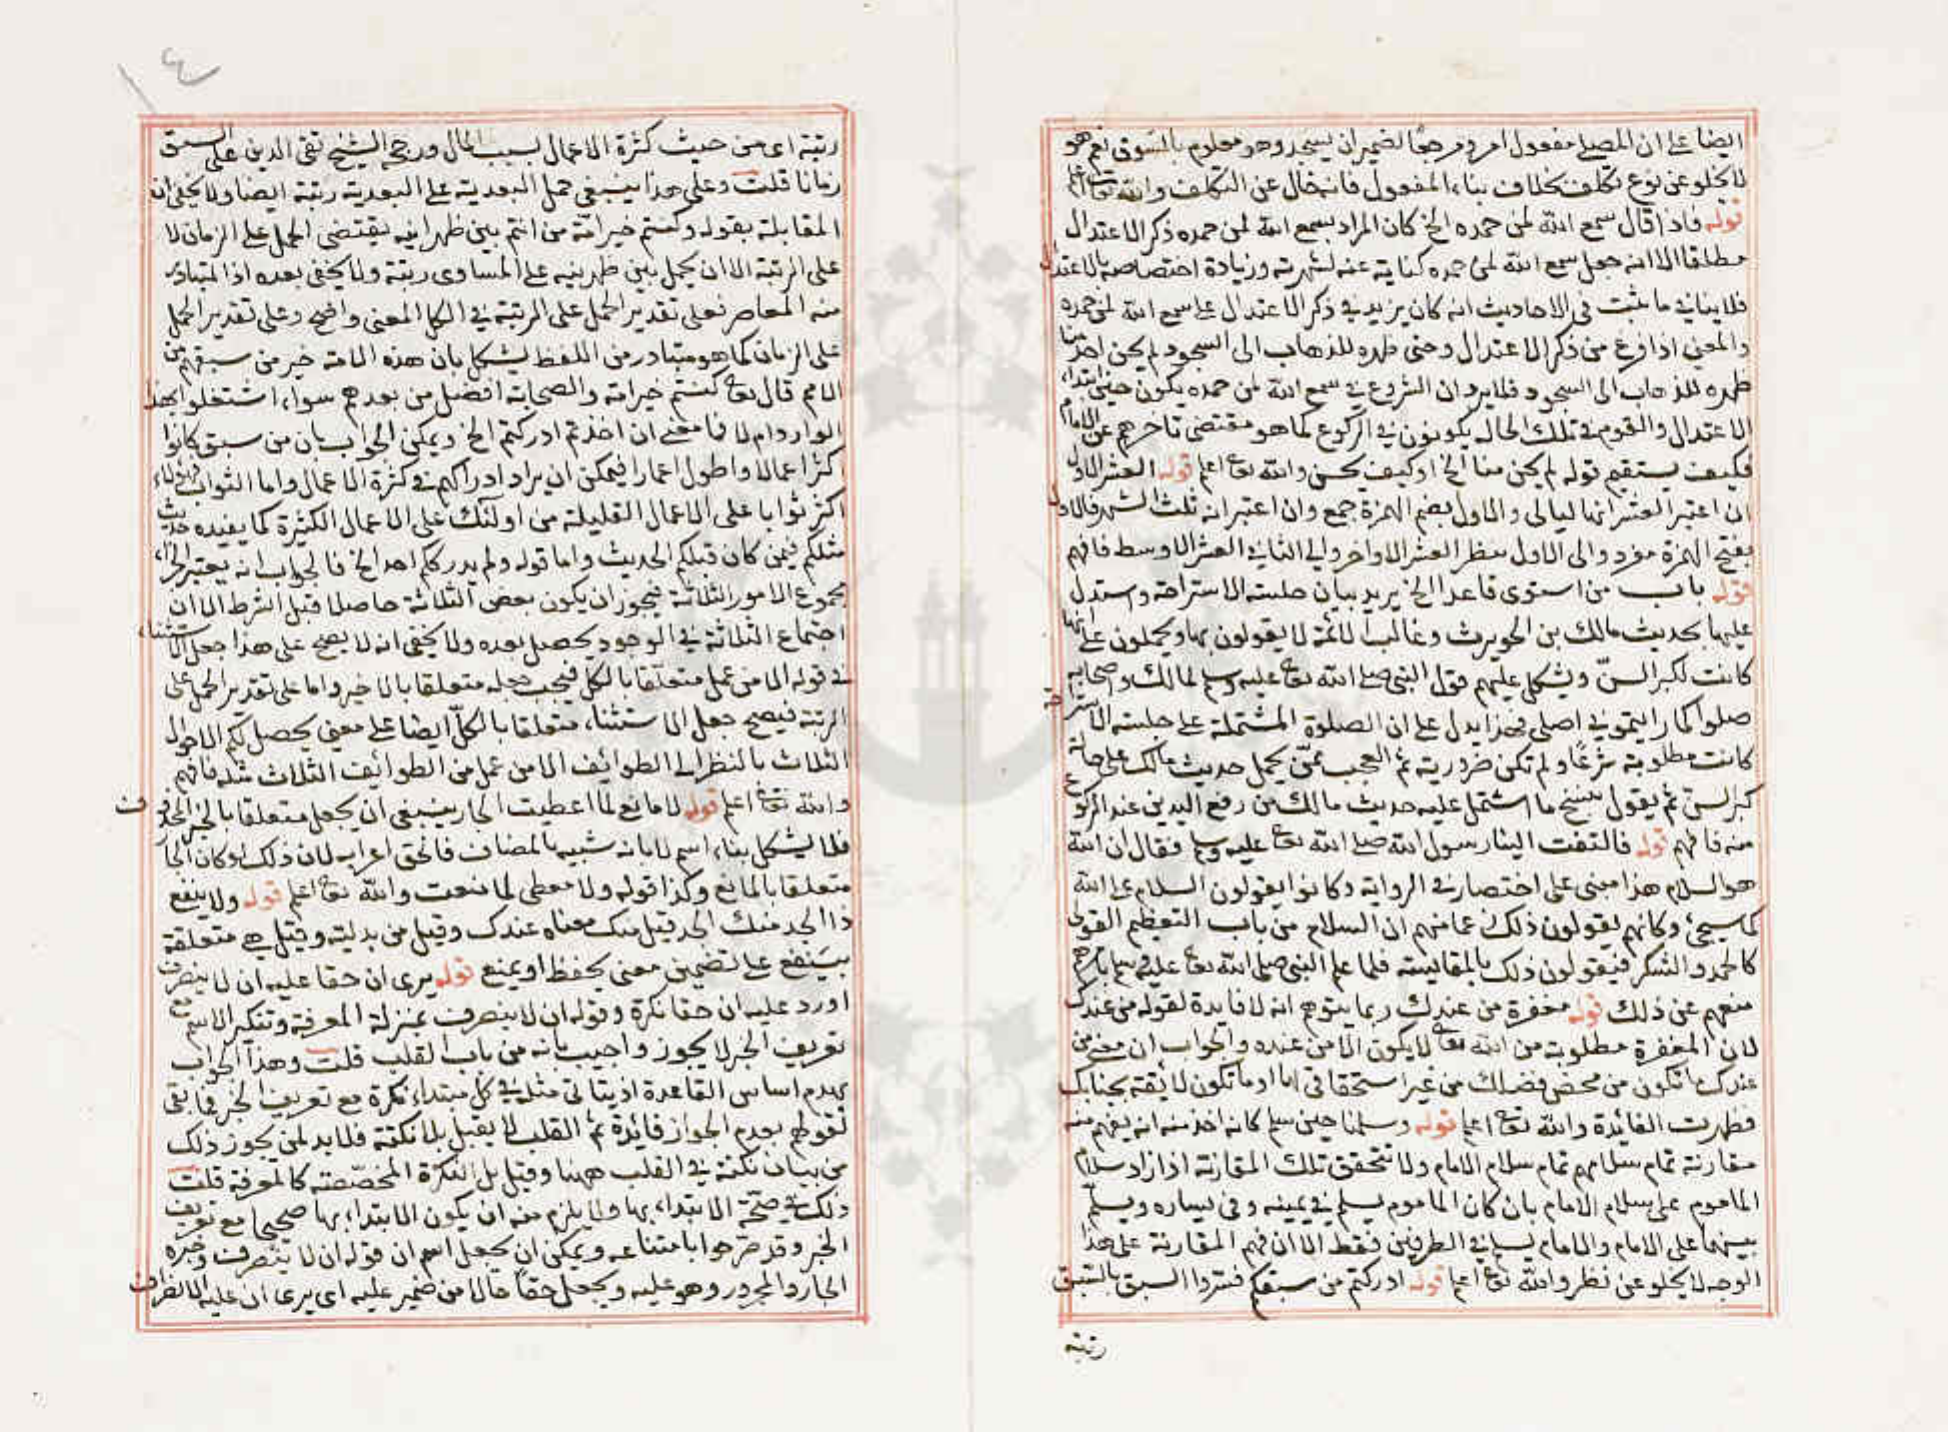 ايضا على ان المصلي مفعول امر ومرجعا لضمير ان يسجد وهو معلوم بالسوق نعم هو
لا يخلو عن نوع تكلف بخلاف بناء المفعول فانه خال عن التكلف والله تعالى اعلم
قوله فاذا قال سمع الله لمن حمده الخ كان المراد بسمع الله لمن حمده ذكر الاعتدال
مطلقا الا انه جعل سمع الله لمن حمده كناية عنه لشهرته وزيادة اختصاصه بالاعتدال
فلا ينافي ما ثبت في الاحاديث انه كان يزيد في ذكر الاعتدال على سمع الله لمن حمده
والمعنى اذا فرغ من ذكر الاعتدال وحنى ظهره للذهاب الى السجود لم يحن احد منا
ظهره للذهاب الى السجود فلا يرد ان الشروع في سمع الله لمن حمده يكون حين ابتداء
الاعتدال والقوم في تلك الحال يكونون في الركوع كما هو مقتضى تاخرهم عن الامام
فكيف يستقيم قوله لم يحن منا الخ او كيف يحسن والله تعالى اعلم قوله العشر الاول
ان اعتبر العشر انها ليالي والاول بضم الهمزة جمع وان اعتبر انه ثلث الشهر فالاول
بفتح الهمزة مفرد والى الاول ينظر العشر الاواخر والى الثاني العشر الاوسط فافهم
قوله باب من استوى قاعدا الخ يريد بيان جلسة الاستراحة واستدل
عليها بحديث مالك بن الحويرث وغالب الائمة لا يقولون بها ويحملون على انها
كانت لكبر السنّ ويشكل عليهم قول النبي صلى الله تعالى عليه وسلم لمالك واصحابه
صلوا كما رايتموني اصلي فهذا يدل على ان الصلوة المشتملة على جلسة الاستراحة
كانت مطلوبة شرعًا ولم تكن ضرورية ثم العجب عمّن يحمل حديث مالك على حالة
كبر السن ثم يقول بنسخ ما اشتمل عليه حديث مالك من رفع اليدين عند الركوع
منه فافهم قوله فالتفت الينا رسول الله صلى الله تعالى عليه وسلم فقال ان الله
هو السلام هذا مبنى على اختصار في الرواية وكانوا يقولون السلام على الله
كما سيجئ وكانهم يقولون ذلك زعما منهم ان السلام من باب التعظيم القولي
كالحمد والشكر فيقولون ذلك بالمقايسة فلما علم النبي صلى الله تعالى عليه وسلم بامرهم
منعهم عن ذلك قوله مغفرة من عندك ربما يتوهم انه لا فايدة لقوله من عندك
لان المغفرة مطلوبة من الله تعالى لا يكون الا من عنده والجواب ان معنى من
عندك ما تكون من محض فضلك من غير استحقاقي اما او ما تكون لائقة بجنابك
فظهرت الفائدة والله تعالى اعلم قوله وسلمنا حين سلم كانه اخذ منه انه يفهم منه
مقارنة تمام سلامهم تمام سلام الامام ولا تتحقق تلك المقارنة اذا زاد سلام
الماموم على سلام الامام بان كان الماموم يسلم في يمينه وفي يساره ويسلم
بينهما على الامام والامام يسلم في الطرفين فقط الا ان فهم المقارنة على هذا
الوجه لا يخلو عن نظر والله تعالى اعلم قوله ادركتم من سبقكم فسّروا السبق بالسّبق
رتبة
رتبة اى من حيث كثرة الاعمال بسبب المال ورجح الشيخ تقي الدين على السبق
زمانا قلت وعلى هذا ينبغي حمل البعدية على البعدية رتبة ايضا ولا يخفى ان
المقابلة بقوله وكنتم خير امّة من انتم بين ظهرانيه يقتضي الحمل على الزمان لا
على الرتبة الا ان يحمل بين ظهرينيه على المساوى رتبة ولا يخفى بعده اذ المتبادر
منه المعاصر فعلى تقدير الحمل على الرتبة في الكل المعنى واضح وعلى تقدير الحمل
على الزمان كما هو متبادر من اللفظ يشكل بان هذه الامة خير من سبقهم من
الامم قال تعالى كنتم خير امة والصحابة افضل من بعدهم سواء اشتغلوا بهذا
الوارد ام لا فما معنى ان اخذتم ادركتم الخ ويمكن الجواب بان من سبق كانوا
اكثر اعمالا واطول اعمارا فيمكن ان يراد ادراكهم في كثرة الاعمال واما الثواب فهؤلاء
اكثر ثوابا على الاعمال القليلة من اولئك على الاعمال الكثيرة كما يفيده حديث
مثلكم فيمن كان قبلكم الحديث واما قوله ولم يدرككم احد الخ فالجواب انه يعتبر الجزاء
مجموع الامور الثلاثة فيجوز ان يكون بعض الثلاثة حاصلا قبل الشرط الا ان
اجتماع الثلاثة في الوجود يحصل بعده ولا يخفى انه لا يصح على هذا جعل الاستثناء
في قوله الا من عمل متعلّقا بالكل فيجب جعله متعلقا بالاخير واما على تقدير الحمل على
الرتبة فيصح جعل الاستثناء متعلقا بالكلّ ايضا على معنى يحصل لكم الاحوال
الثلاث بالنظر الى الطوائف الا من عمل من الطوائف الثلاث مثله فافهم
والله تعالى اعلم قوله لا مانع لما اعطيت الجار ينبغي ان يجعل متعلقا بالخبر المحذوف
فلا يشكل بناء اسم لا بانه شبيه بالمضاف فالحق اعرابه لان ذلك لو كان الجار
متعلقا بالمانع وكذا قوله ولا معطى لما منعت والله تعالى اعلم قوله ولا ينفع
ذا الجد منك الجد قيل منك معناه عندك وقيل من بدلية وقيل هي متعلقة
بينفع على تضمين معنى يحفظ او يمنع قوله يرى ان حقا عليه ان لا ينصرف
اورد عليه ان حقا نكرة وقوله ان لا ينصرف بمنزلة المعرفة وتنكير الاسم مع
تعريف الخبر لا يجوز واجيب بانه من باب القلب قلت وهذا الجواب
يهدم اساس القاعدة اذ يتاتى مثله في كل مبتداء نكرة مع تعريف الخبر فما بقى
لقولهم بعدم الجواز فائدة ثم القلب لا يقبل بلا نكتة فلا بد لمن يجوز ذلك
من بيان نكتة في القلب ههنا وقيل بل النكرة المخصّصة كالمعرفة قلت
ذلك في صحّة الابتداء بها ولا يلزم منه ان يكون الابتداء بها صحيحا مع تعريف
الخبر وقد صرّحوا بامتناعه ويمكن ان يجعل اسم ان قوله ان لا ينصرف وخبره
الجار والمجرور وهو عليه ويجعل حقا حالا من ضمير عليه اى يرى ان عليه الانصراف